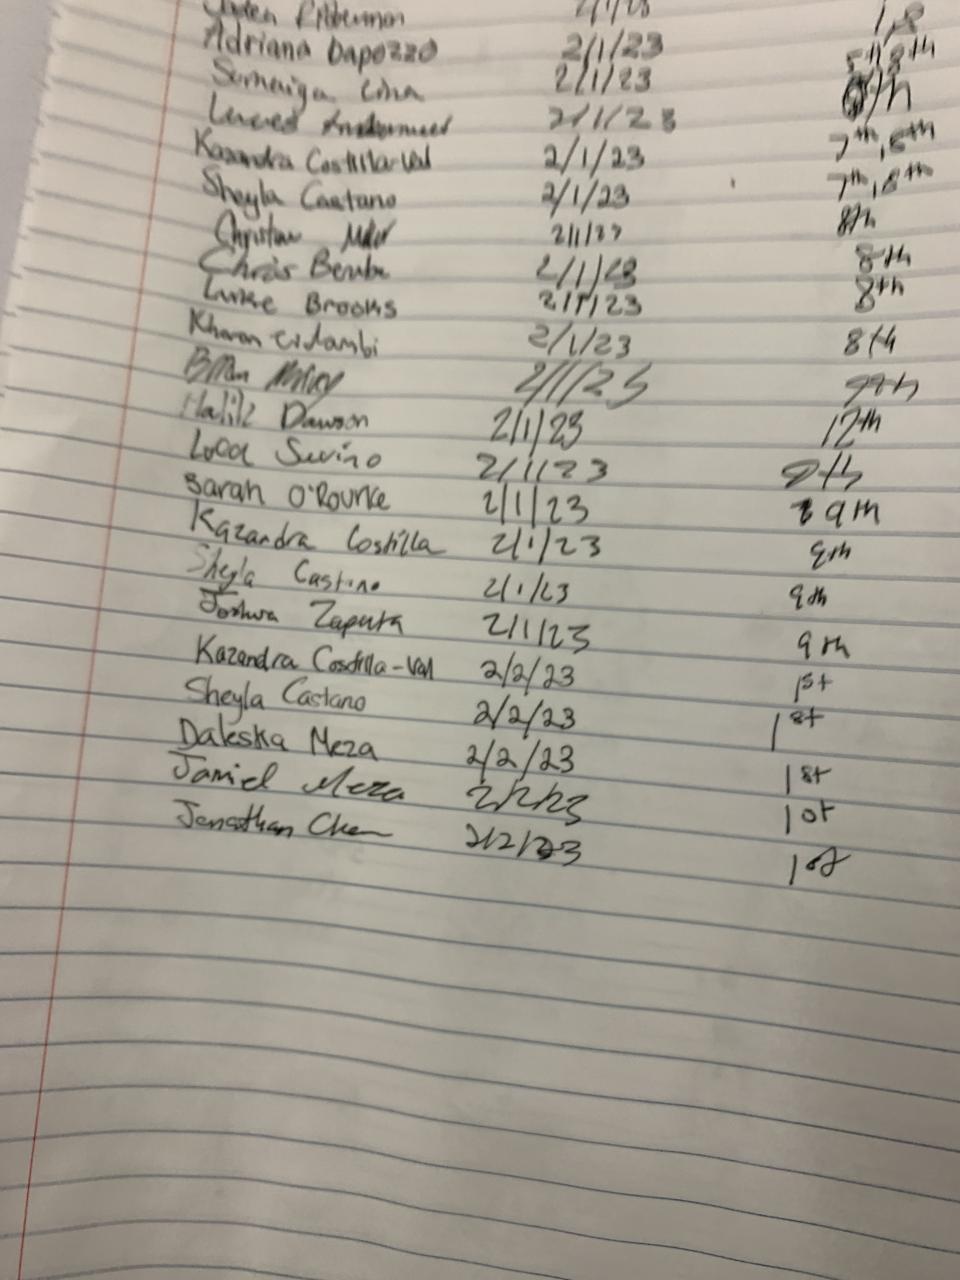 2/1/23 1,8
Adriana Dapozzo 2/1/23 5th 8th
Sumaiya 2/1/23
2/1/23 7th, 8th
Kazandra Costilla-Val 2/1/23 7th, 8th
Sheyla Castano 2/1/23 8th
Christian 2/1/23 8th
Chris 2/1/23 8th
Luke Brooks 2/1/23
Kharan Cidambi 2/1/23 8th
Brian 2/1/23 9th
Malik Dawson 2/1/23 12th
Luca Savino 2/1/23 9th
Sarah O'Rourke 2/1/23 9th
Kazandra Costilla 2/1/23 9th
Sheyla Castano 2/1/23 9th
Joshua Zaputa 2/1/23 9th
Kazandra Costilla-Val 2/2/23 1st
Sheyla Castano 2/2/23 1st
Daleska Meza 2/2/23 1st
Jamiel Meza 2/2/23 1st
Jonathan Chen 2/2/23 1st